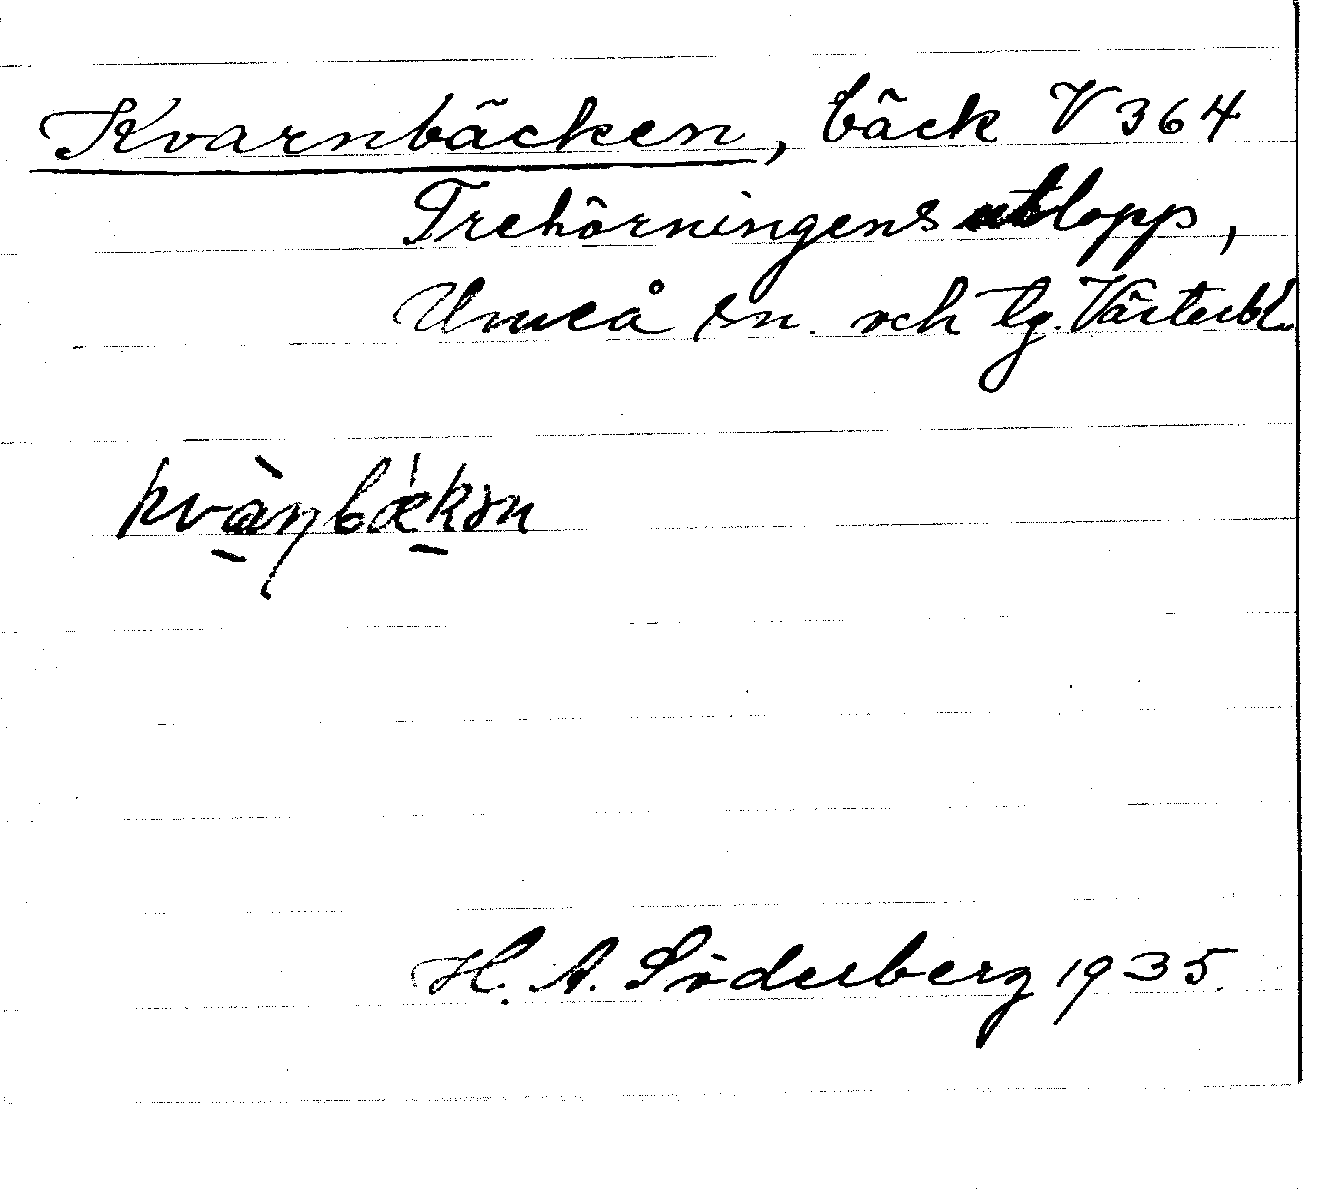 Kvarnbäcken, bäck V 364
Trehörningens utlopp,
Umeå sn. och tg. Västerb l.
kvànbǽkən
H. A. Söderberg 1935.